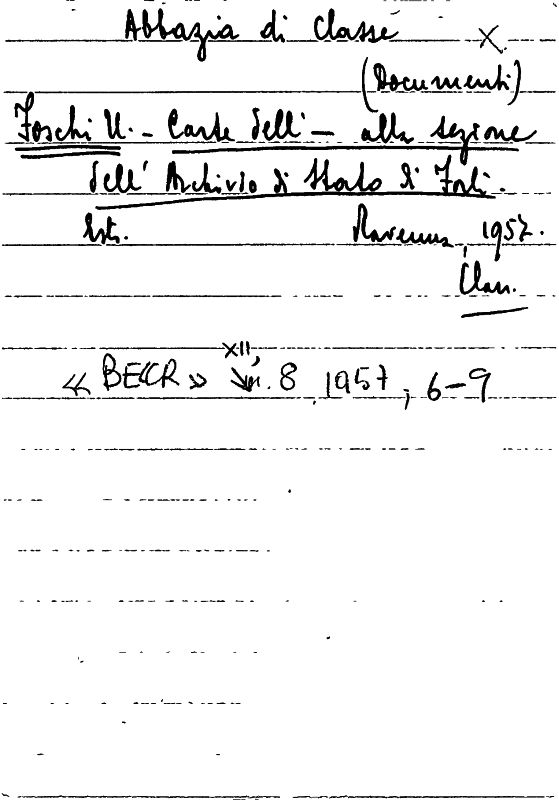 Abbazia di Classe X
(Documenti)
Foschi U. - Carte dell' - alla sezione
dell' Archivio di Stato di Forlì.
Estr. Ravenna, 1957.
Class.
XII,
« BECR » n. 8, 1957, 6-9